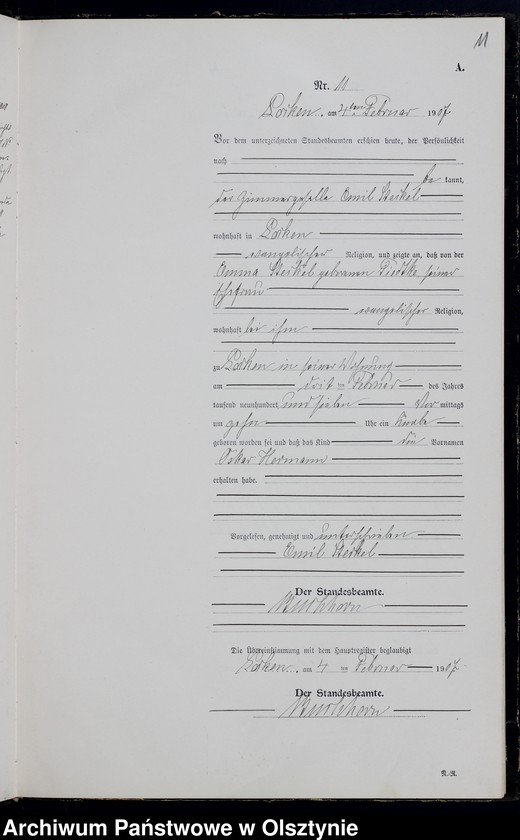 11
A.
Nr. 11
am 4ten Februar 1907
Vor dem unterzeichneten Standesbeamten erschien heute, der Persönlichkeit
nach
be kannt,
der Zimmergeselle Emil
wohnhaft in
evangelischer Religion, und zeigte an, daß von der
Emma geborenen seiner
Ehefrau
evangelischer Religion,
wohnhaft bei ihm
zu in seiner Wohnung
am dritten Februar des Jahres
tausend neunhundert und sieben Vor mittags
um zehn Uhr ein Knabe
geboren worden sei und daß das Kind den Vornamen
Oskar Hermann
erhalten habe.
Vorgelesen, genehmigt und unterschrieben
Emil
Der Standesbeamte.
Buchhorn
Die Übereinstimmung mit dem Hauptregister beglaubigt
am 4 ten Februar 1907.
Der Standesbeamte.
Buchhorn
Archiwum Państwowe w Olsztynie